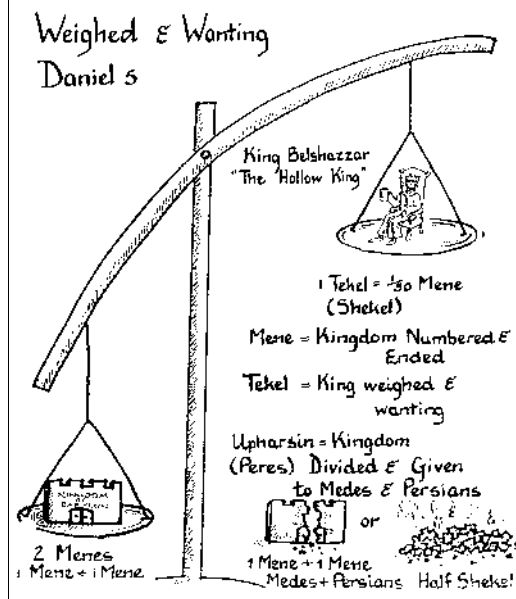 Weighed & Wanting
Daniel 5
King Belshazzar
"The "Hollow King"
1 Tekel = 1/50 Mene
(Shekel)
Mene = Kingdom Numbered &
Ended
Tekel = King weighed &
wanting
Upharsin = Kingdom
(Peres) Divided & Given
to Medes & Persians
KINGDOM
OF
BABYLON
or
2 Menes
1 Mene + 1 Mene
1 Mene + 1 Mene
Medes + Persians
Half Shekel